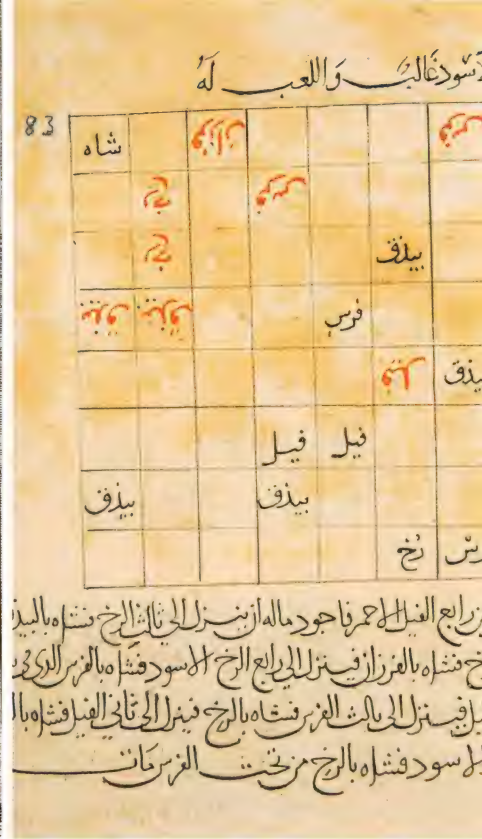 لأسود غالبٌ وَاللعب لَهُ
83
فرس فرزان شاه
فرس رخ
بيذق رخ
فرس بيذق بيذق
يذق فيل
فيل فيل
بيذق بيذق
رس رخ
رابع الفيل الاحمر فاجود ماله ان ينزل الى ثالث الرخ فتشاه بالبيذ
خ فتشاه بالفرزان فينزل الى رابع الرخ الاسود فتشاه بالفرس الذى فى
يل فينزل الى ثالث الفرس فتشاه بالرخ فينزل الى ثانى الفيل فتشاه با
الاسود فتشاه بالرخ من تحت الفرس مات